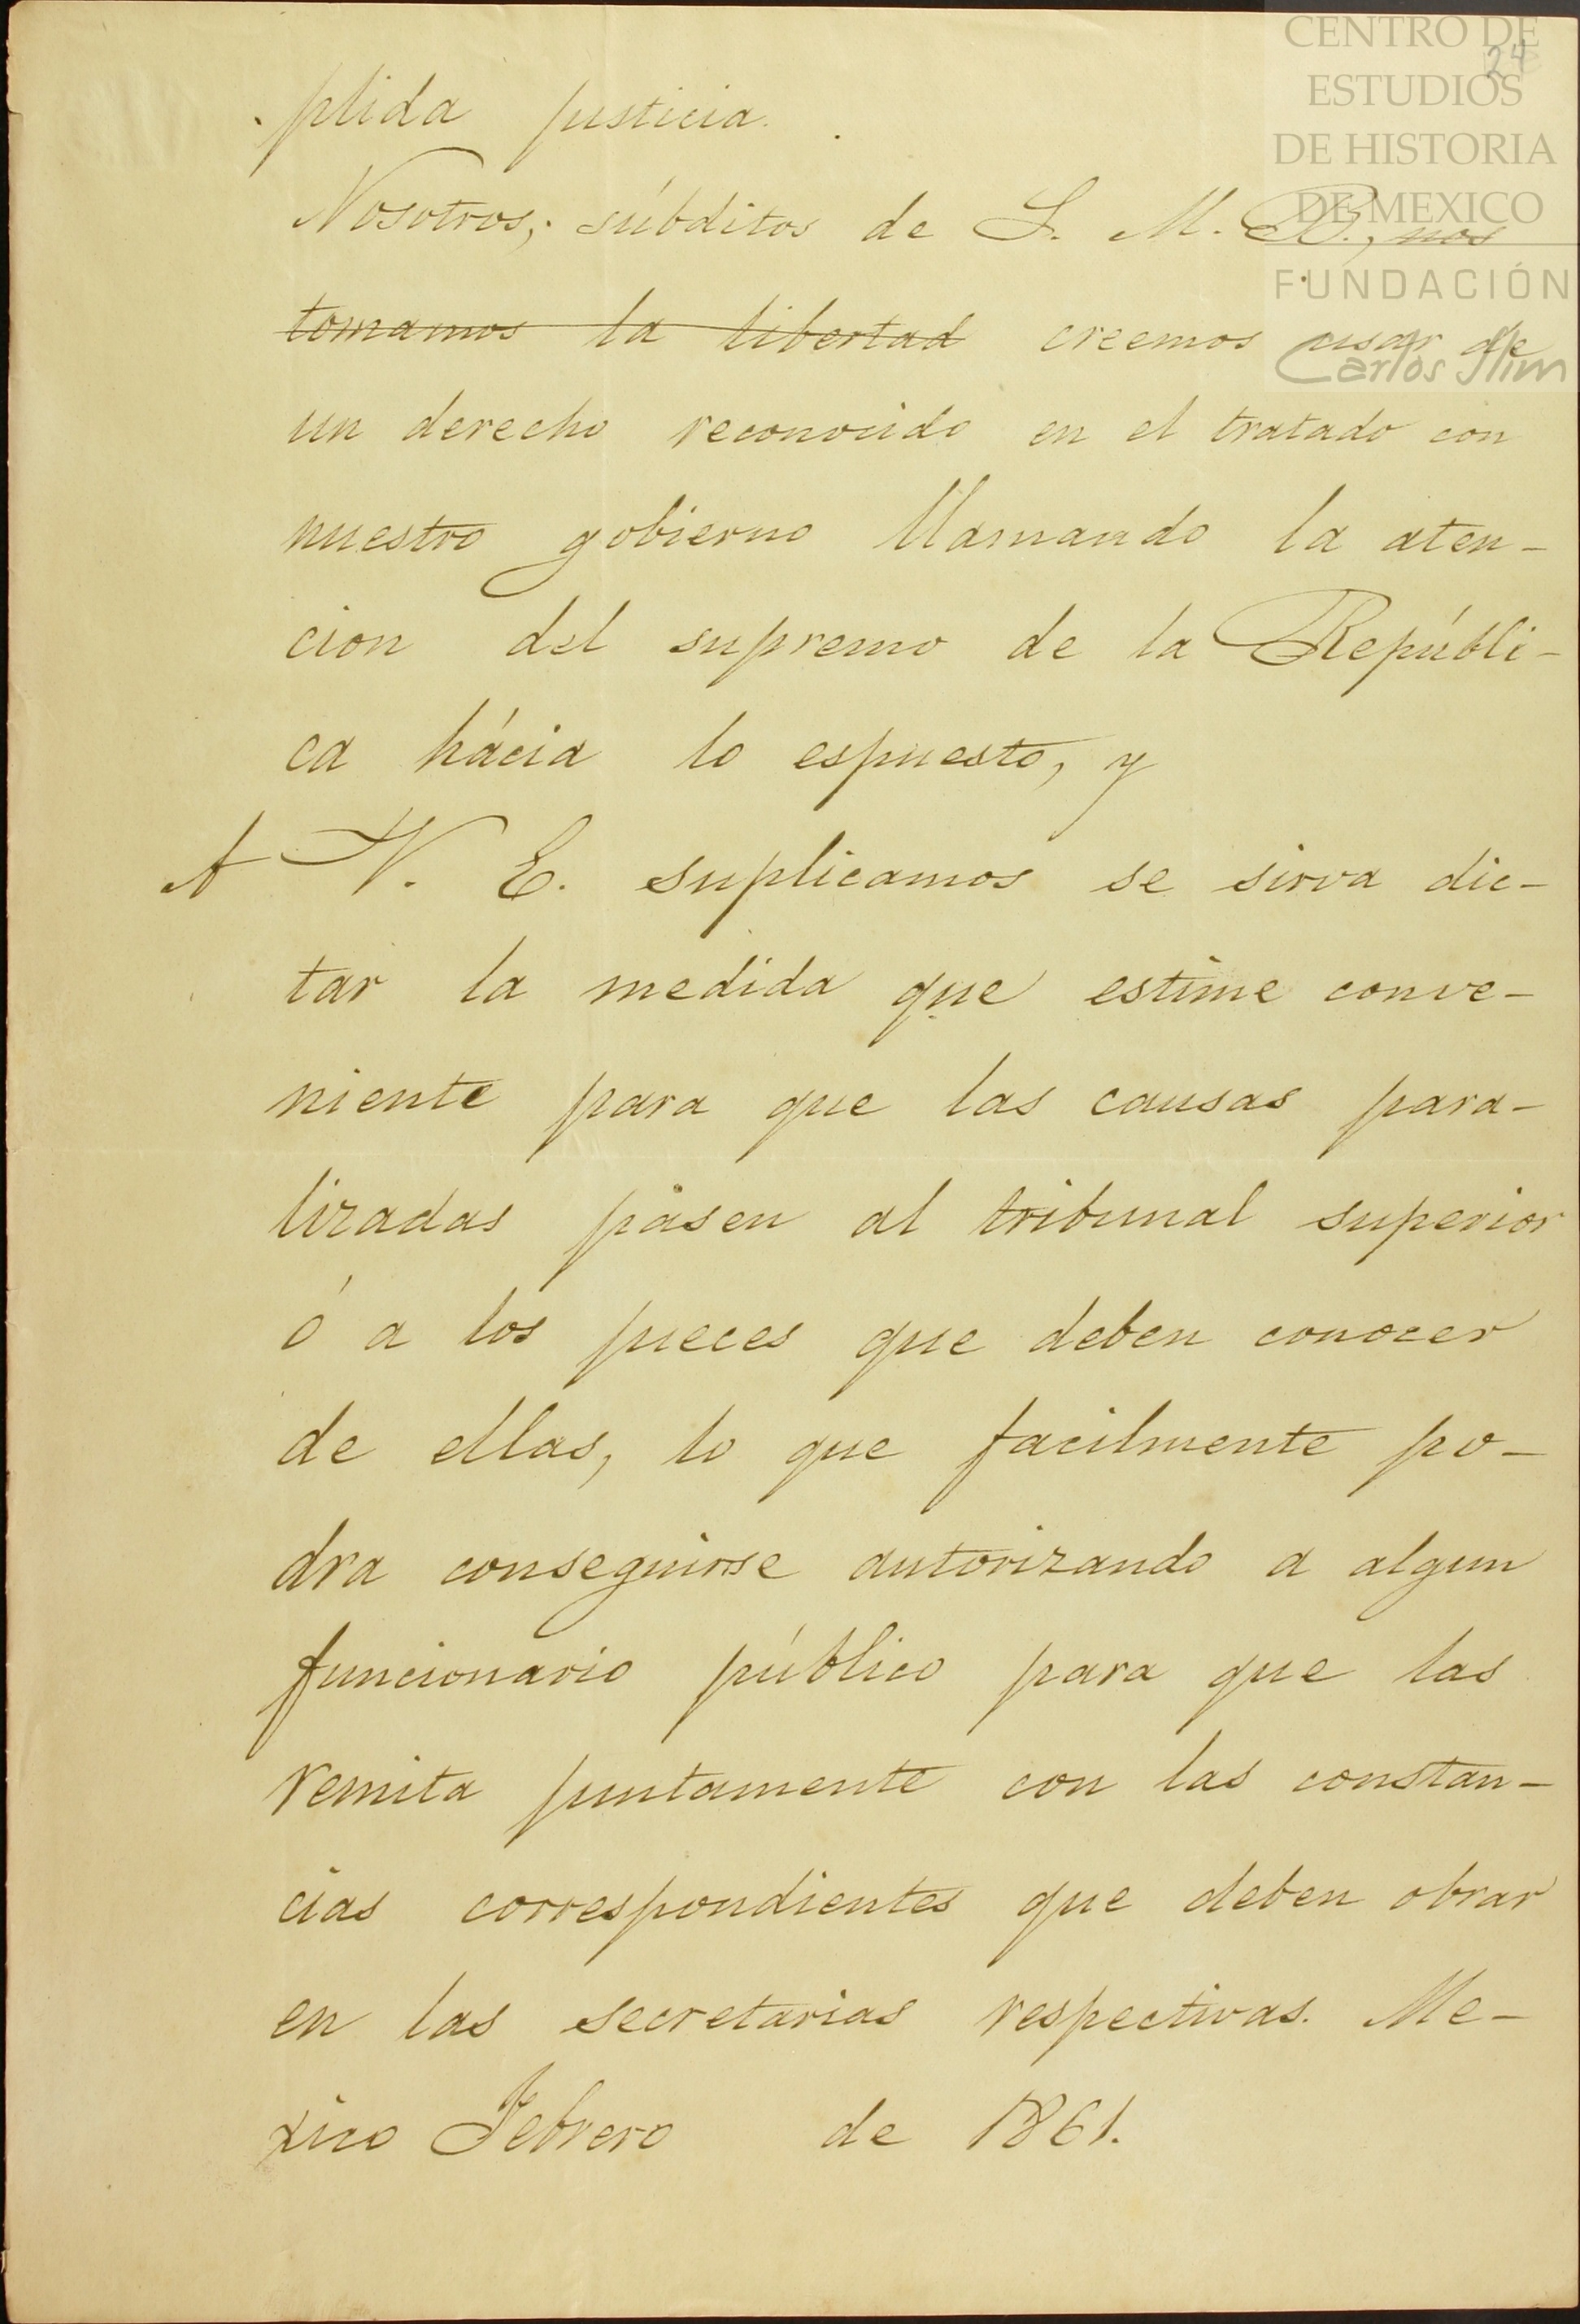 CENTRO DE
24
ESTUDIOS
DE HISTORIA
DE MEXICO
FUNDACIÓN
Carlos Slim
plida justicia.
Nosotros, súbditos de S. M. B., nos
tomamos la libertad creemos usar de
un derecho reconocido en el tratado con
nuestro gobierno llamando la aten-
cion del supremo de la Repúbli-
ca hácia lo espuesto, y
A V. E. suplicamos se sirva dic-
tar la medida que estime conve-
niente para que las causas para-
lizadas pasen al tribunal superior
ó a los jueces que deben conocer
de ellas, lo que facilmente po-
dra conseguirse autorizando a algun
funcionario público para que las
remita juntamente con las constan-
cias correspondientes que deben obrar
en las secretarias respectivas. Me-
xico Febrero de 1861.